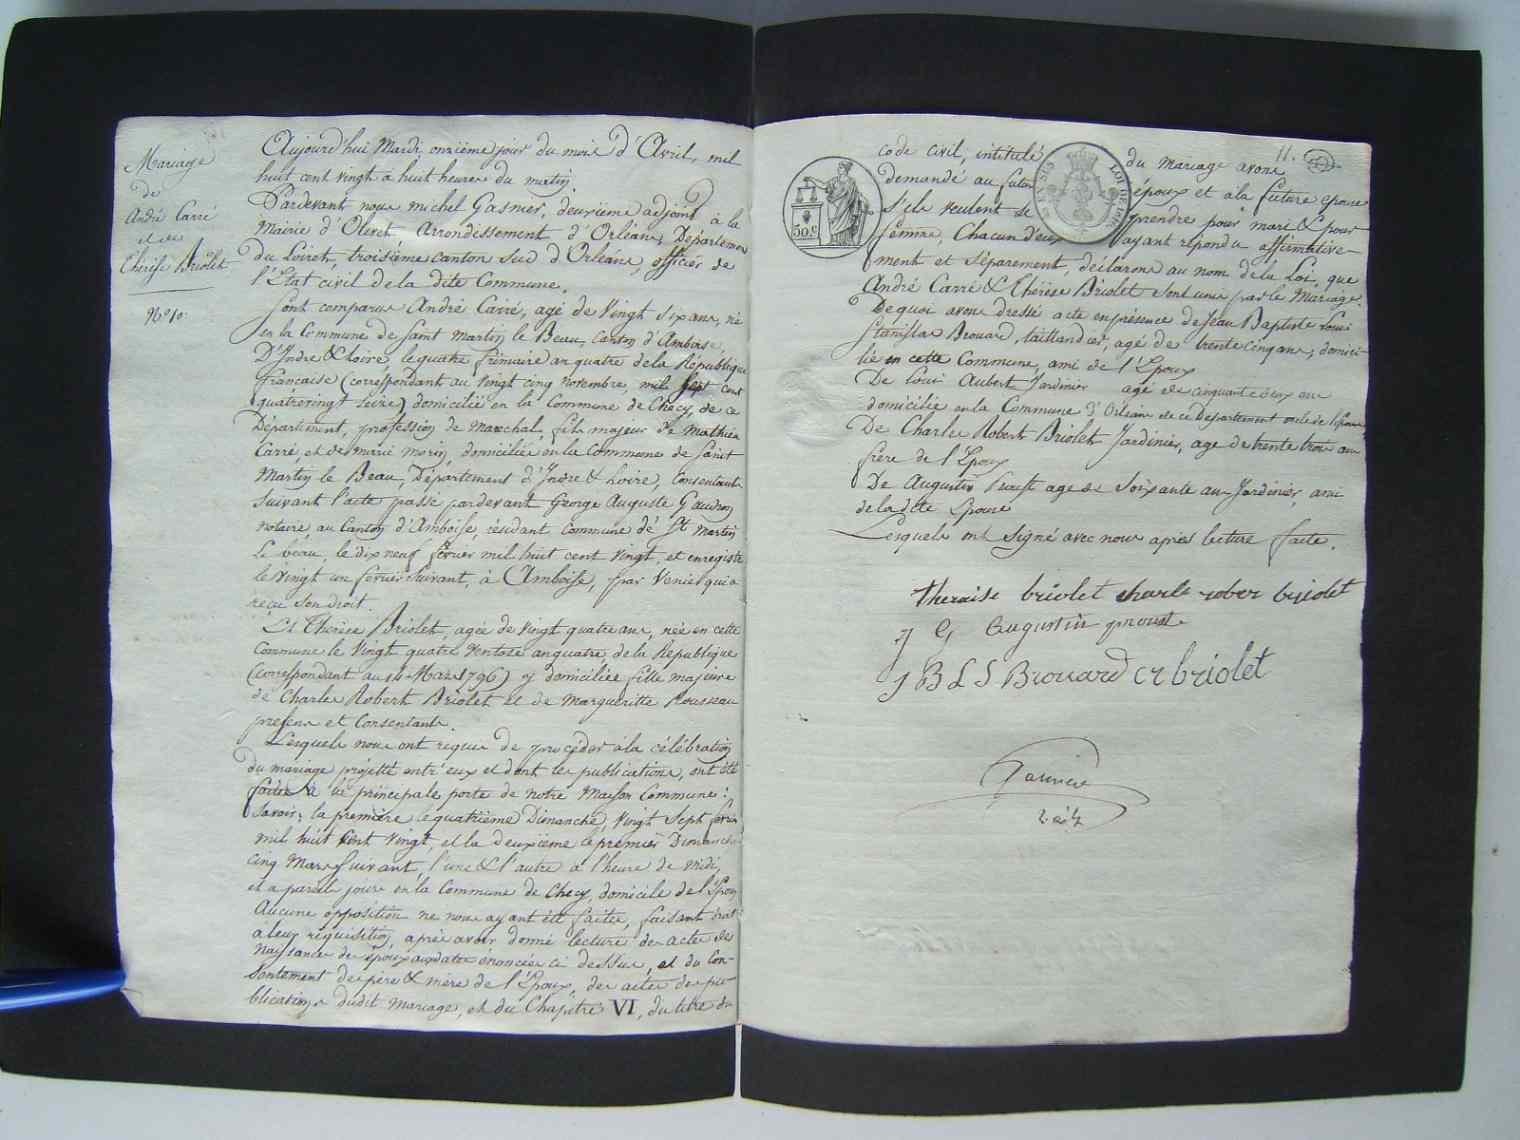 Mariage
de
André Carré
et de
Thérèse Briolet
N.º 10.
Aujourd'hui Mardi onzième jour du mois d'Avril, mil
huit cent vingt à huit heures du matin
Pardevant nous michel Gasnier, deuxième adjoint à la
Mairie d'Olivet Arrondissement d'Orléans, Département
du Loiret, troisième canton sud d'Orléans, officier de
l'Etat civil de la dite Commune.
Sont comparus André Carré, agé de Vingt six ans, né
en la Commune de Saint Martin le Beau, Canton d'Amboise,
D'Indre & Loire, le quatre frimaire an quatre de la République
française (correspondant au vingt cinq novembre, mil sept cent
quatrevingt seize) domicilié en la Commune de Checy, de ce
Département, profession de Marechal, fils majeur de Mathieu
Carré et de marie morin, domiciliés en la Commune de Saint
Martin le Beau, Département d'Indre & Loire, Consentants
suivant l'acte passé pardevant George Auguste Gaudron
notaire au Canton d'Amboise, résidant commune de St Martin
le beau, le dix neuf février mil huit cent vingt, et enregistré
le vingt un fevrier suivant, à Amboise, par Venier qui a
reçu son droit.
Et Thérèse Briolet, agée de vingt quatre ans, née en cette
Commune le Vingt quatre Ventose an quatre de la République
(correspondant au 14 Mars 1796) y domiciliée fille majeure
de Charles Robert Briolet et de Margueritte Rousseau
presens et Consentants.
Lesquels nous ont requis de procéder à la célébration
du mariage projetté entre eux et dont les publications, ont été
faites à la principale porte de notre Maison Commune:
Savoir, la première le quatrième Dimanche, Vingt Sept fevrier
mil huit cent Vingt, et la deuxième le premier Dimanche
cinq Mars suivant, l'une & l'autre à l'heure de midi,
et a pareils jours en la Commune de Checy, domicile de l'Epoux
Aucune opposition ne nous ayant été faites, faisant droit
à leur réquisition, après avoir donné lecture des actes de
Naissance des époux audatés énoncées ci dessus, et du Con-
sentement des père & mère de l'Epoux, des actes de pu-
blications dudit Mariage, et du Chapitre VI, du titre du
11.
code civil, intitulé du Mariage avons
demandé au futur époux et à la future epouse
S'ils veulent se prendre pour mari & pour
femme, Chacun d'eux ayant répondu affirmative-
ment et séparement, déclarons au nom de la Loi, que
André Carré & Thérèse Briolet sont unis par le Mariage.
De quoi avons dressé acte en présence de Jean Baptiste Louis
Stanislas Brouard, taillandier, agé de trente cinq ans, domici-
lié en cette Commune, ami de l'Epoux
De Louis Aubert Jardinier agé de cinquante deux ans
domicilié en la Commune d'Orleans de ce Département oncle de l'Epouse
De Charles Robert Briolet Jardinier, age de trente trois ans
frère de l'Epoux
De Augustin Proust agé de Soixante ans Jardinier, ami
de la dite Epouse
Lesquels ont signé avec nous après lecture faite.
theraise briolet charle rober briolet
augustin proust
J B L S Brouard cr briolet
50.c